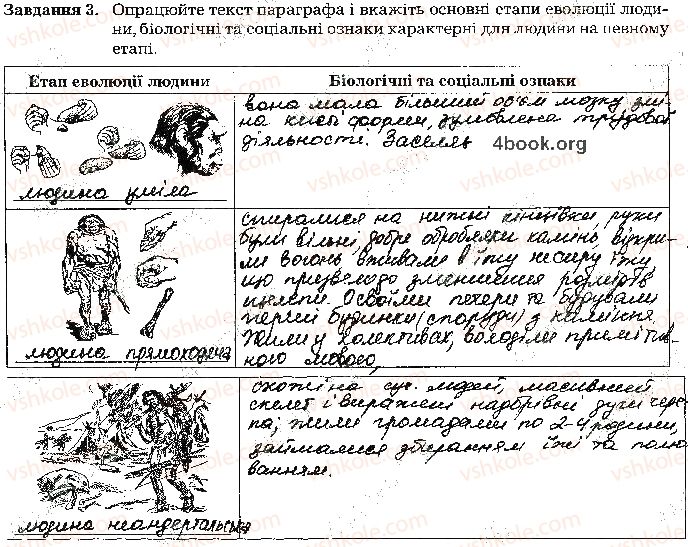 Завдання 3. Опрацюйте текст параграфа і вкажіть основні етапи еволюції люди-
ни, біологічні та соціальні ознаки характерні для людини на певному
етапі.
Етап еволюції людини
Біологічні та соціальні ознаки
людина уміла
вона мала більший об'єм мозку, змі-
на кисті форми, зумовлена трудовою
діяльності. Заселяв 4book.org
людина прямоходяча
спиралися на нижні кінцівки руки
були вільні, добре обробляли камінь, відкри-
ли вогонь вживали в їжу не сиру їжу
що призвело до зменшення розмірів
щелепи. Освоїли печери та будували
перші будинки (споруди) з каміння.
Жили у колективах, володіли приміти-
вною мовою,
людина неандертальська
схожі на суч. людей, масивний
скелет і виражені надбрівні дуги чере-
па; жили громадами по 2-4 родини,
займалися збиранням їжі та полю-
ванням.
vshkole.com